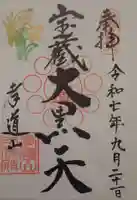 奉拝
令和七年九月二十日
宝蔵
大黒天
孝道山